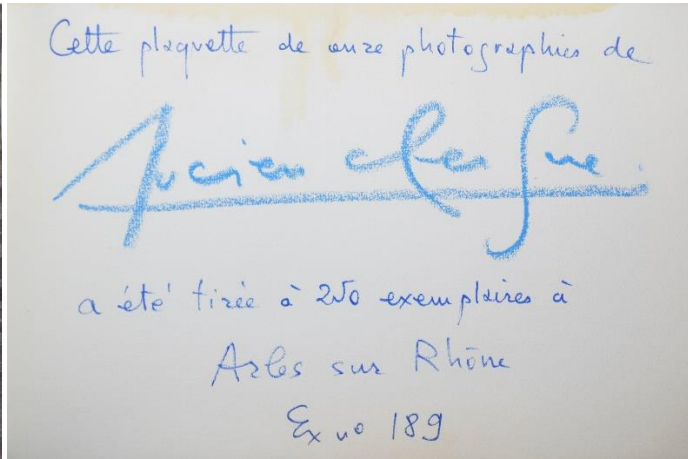 Cette plaquette de onze photographies de
Lucien Clergue.
a été tirée à 250 exemplaires à
Arles sur Rhône
Ex no 189